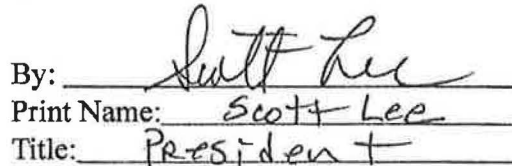 By: Scott Lee
Print Name: Scott Lee
Title: President